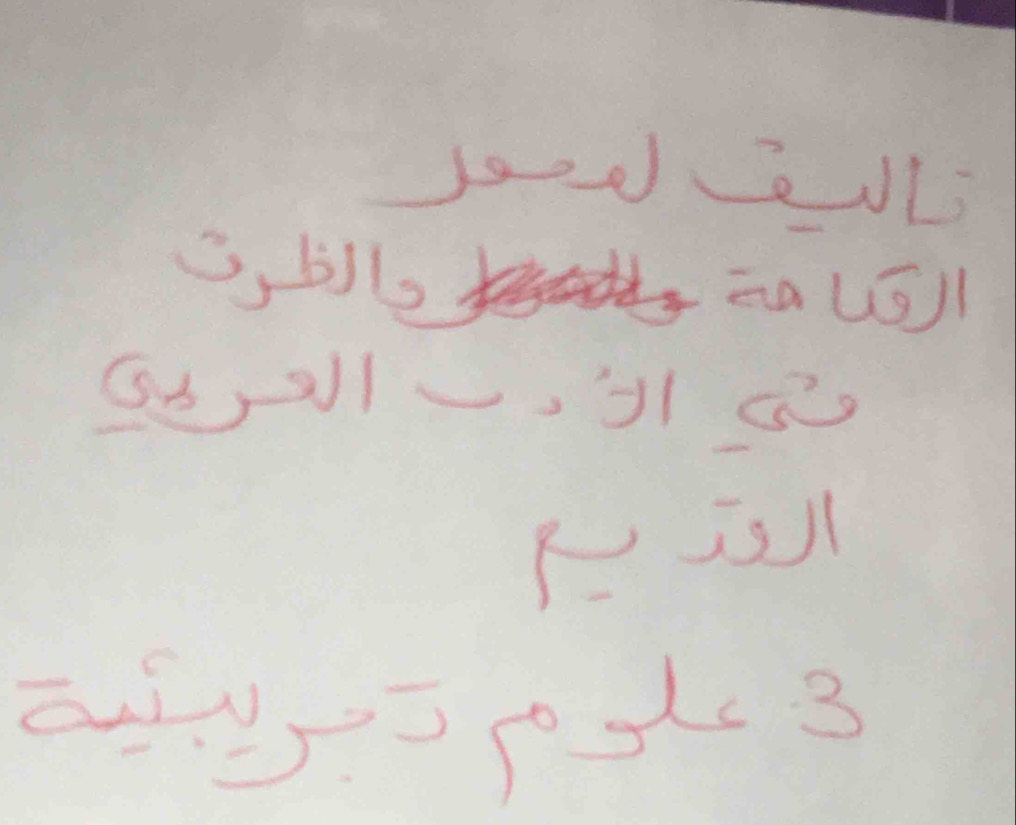 تاليف لمحور
الفكاهة والظرف
في الأدب العربي
القديم
3 علوم تجريبية